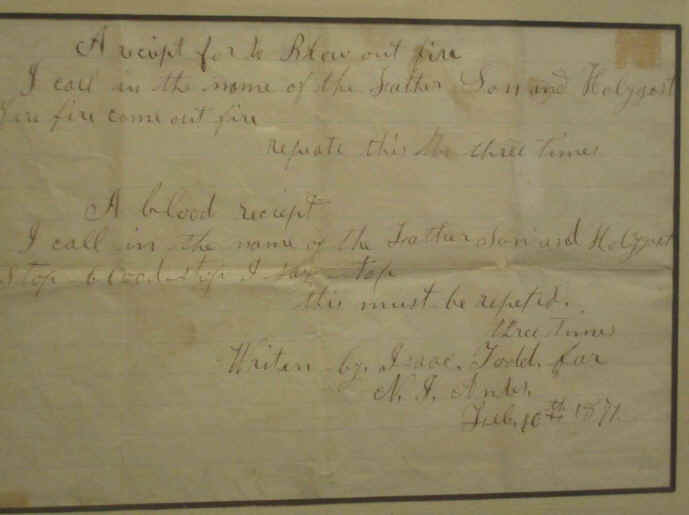 A reciept for to Blow out fire
I call in the name of the Father Son and Holygost
fire fire come out fire
repeate this three times
A blood reciept
I call in the name of the Father Son and Holygost
Stop blood stop I say stop
this must be repeted.
three times
Writen by Isaac. Todd. for
N. J.
10th 1871